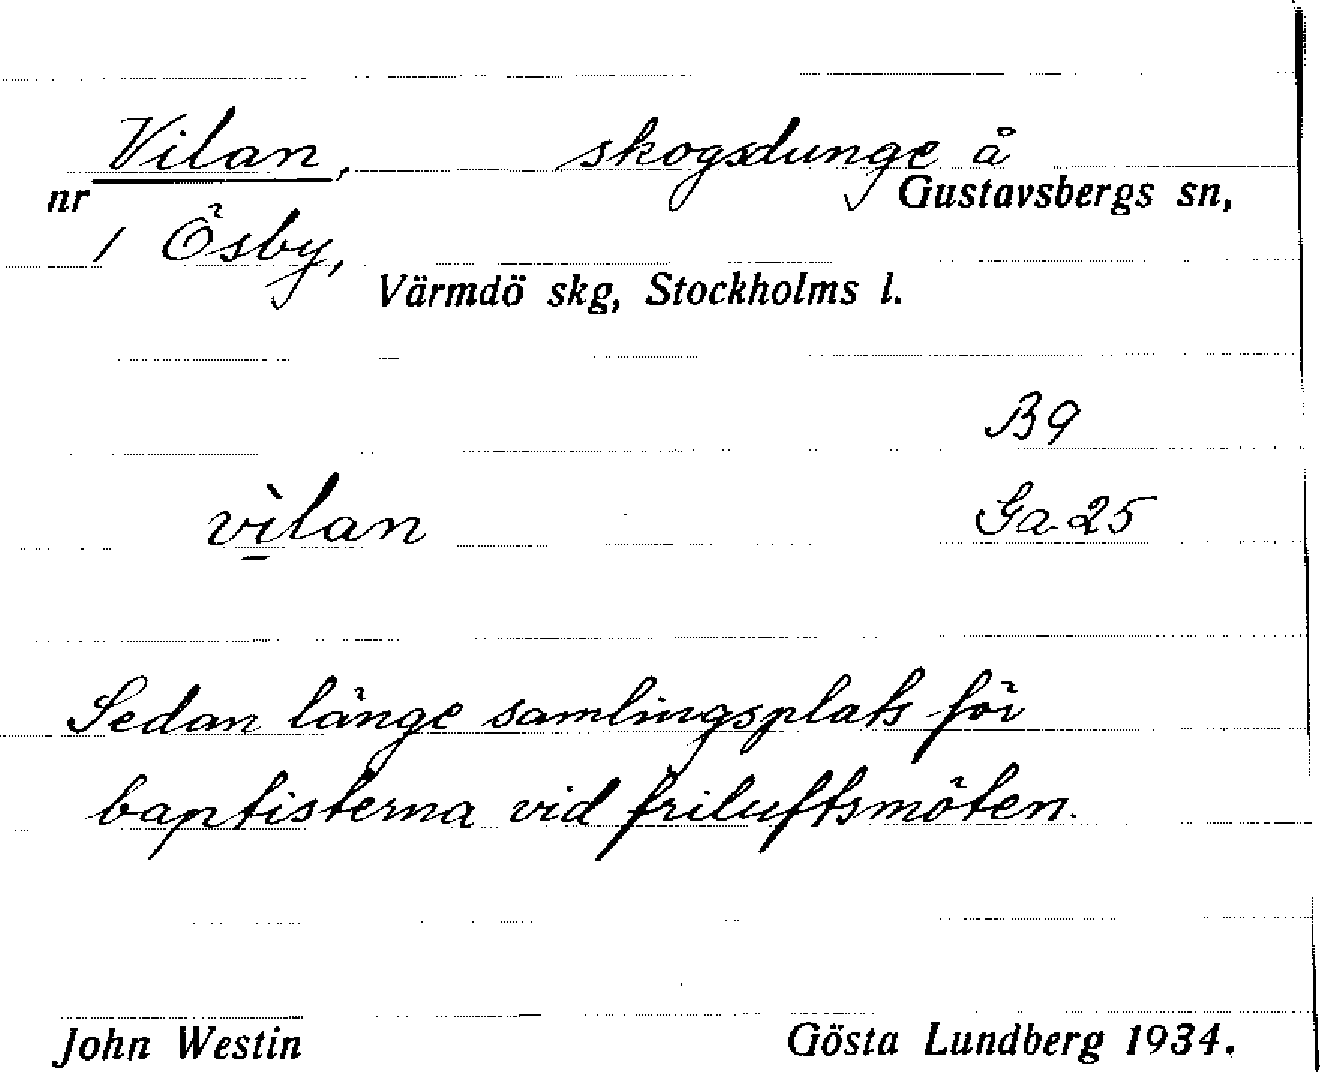 Vilan, skogsdunge å
nr Gustavsbergs sn,
1 Ösby,
Värmdö skg, Stockholms l.
B9
vì̱lan Ga 25
Sedan länge samlingsplats för
baptisterna vid friluftsmöten.
John Westin Gösta Lundberg 1934.